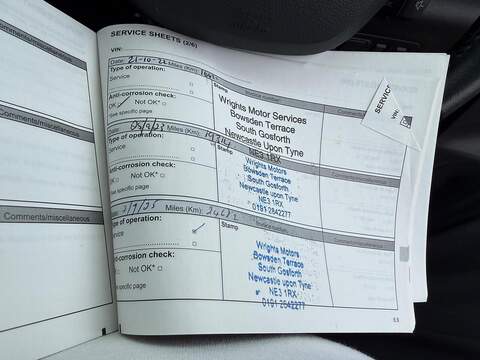 SERVICE SHEETS (2/6)
VIN:
Comments/miscellaneous
Date: 21-10-22 Miles (Km):
Type of operation:
Service
Stamp
Anti-corrosion check:
OK Not OK*
*See specific page
Wrights Motor Services
Bowsden Terrace
South Gosforth
Newcastle Upon Tyne
NE3 1RX
SERVICE
VIN:
Comments/miscellaneous
Date: Miles (Km):
Type of operation:
Service
Stamp
Anti-corrosion check:
OK Not OK*
*See specific page
Wrights Motors
Bowsden Terrace
South Gosforth
Newcastle upon Tyne
NE3 1RX
0191 2842277
Comments/miscellaneous
Comments/miscellaneous
Miles (Km):
Type of operation:
Service
Stamp
Anti-corrosion check:
Not OK*
*See specific page
Wrights Motors
Bowsden Terrace
South Gosforth
Newcastle upon Tyne
NE3 1RX
0191 2842277